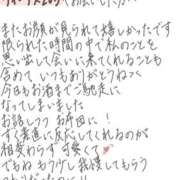 またお顔が見られて嬉しかったです
限られた時間の中で私のことを
思い出して会いに来てくれることも
含めて いつもありがとうねっ
今日もお酒までご馳走に
なってしまいました
お話しつつ お布団に！
すぐ素直に反応してくれるのが
相変わらず可愛くて♥
でもね もう少し我慢してもらう